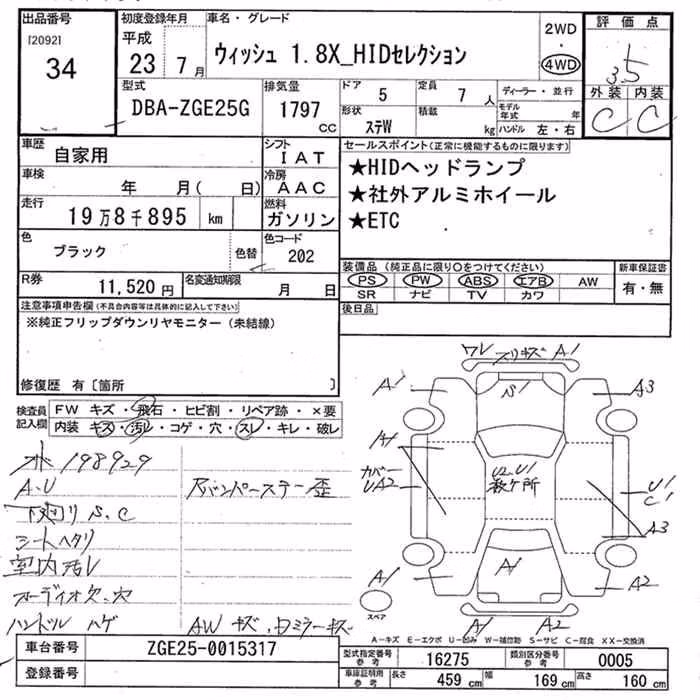 出品番号
[2092]
34
初度登録年月
平成
23 7月
車名・グレード
ウィッシュ 1.8X_HIDセレクション
2WD
・
4WD
評価点
3.5
外装 内装
C C
型式
DBA-ZGE25G
排気量
1797
CC
ドア 5
定員 7 人
形状 ステW
積載 kg
ディーラー・並行
モデル年式 年
ハンドル 左・右
車歴
自家用
シフト
IAT
車検
年 月( 日)
冷房
AAC
走行
19万8千895 km
燃料
ガソリン
色
ブラック
色替
色コード
202
R券
11,520円
名変通知期限
月 日
セールスポイント(正常に機能するものに限ります)
★HIDヘッドランプ
★社外アルミホイール
★ETC
装備品(純正品に限り○をつけてください)
新車保証書
PS PW ABS エアB AW
SR ナビ TV カワ
有・無
後日品
注意事項申告欄(不具合内容等は具体的に記入して下さい)
※純正フリップダウンリヤモニター(未結線)
修復歴 有〔箇所 〕
検査員記入欄
FW キズ・飛石・ヒビ割・リペア跡・×要
内装 キズ・汚れ・コゲ・穴・スレ・キレ・破レ
198929
A.U
下廻り S.C
シートヘタリ
室内汚レ
オーディオ欠.穴
ハンドル ハゲ
Rバンパーステー歪
AW キズ.
ミラーキズ
ワレ
スリキズ A1
A1
S1
A3
A1
カバー
UA2
U2.U1
数ケ所
U1
C1
A3
A1
A1
A2
A1
A2
スペア
A-キズ E-エクボ U-凹み W-補修跡 S-サビ C-腐食 XX-交換済
車台番号
ZGE25-0015317
登録番号
型式指定番号
参考
16275
類別区分番号
参考
0005
車庫証明用
参考
長さ 459 cm
幅 169 cm
高さ 160 cm